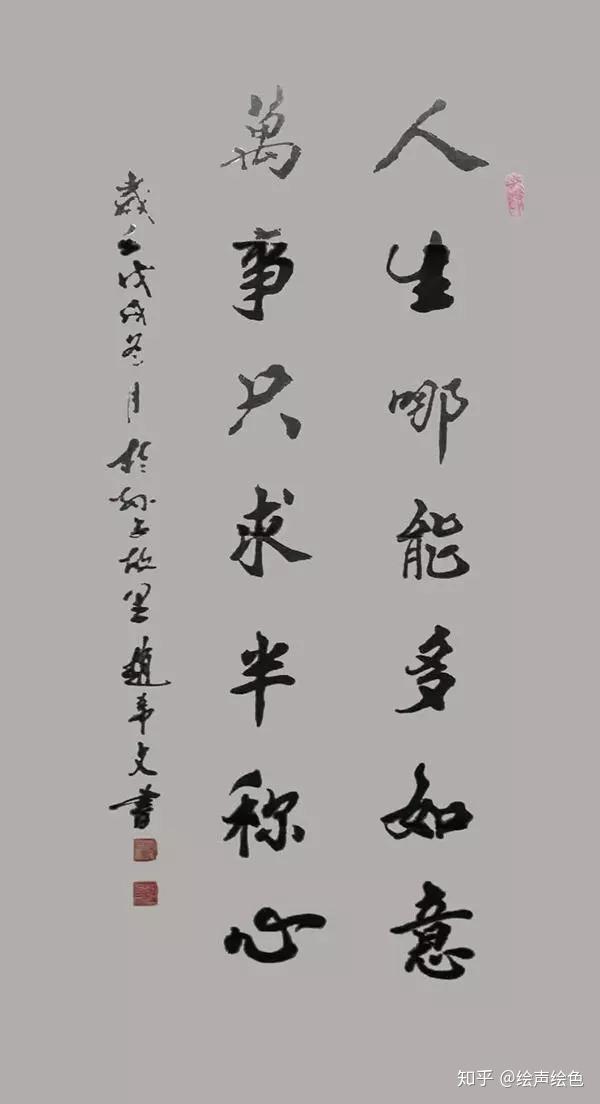 人生哪能多如意
萬事只求半称心
歲在戊戌冬月於孙子故里趙希文書
知乎 @绘声绘色